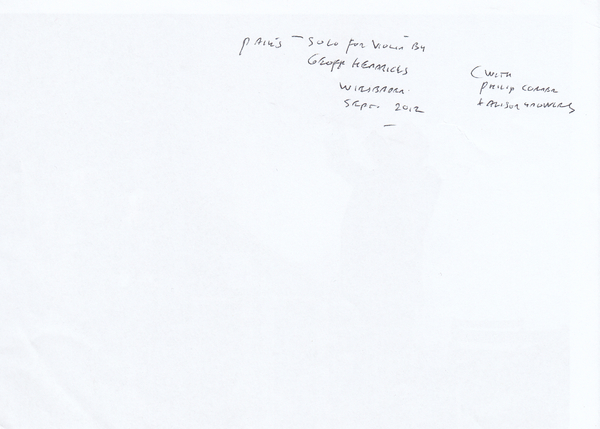 PAIK'S "SOLO FOR VIOLIN" BY
GEOFF HENDRICKS
WIESBADEN
SEPT. 2012
(WITH
PHILIP CORNER
+ ALISON KNOWLES